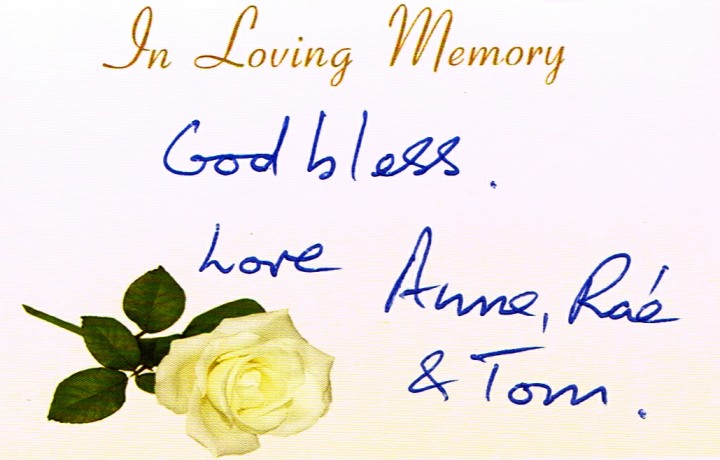 In Loving Memory
God bless.
Love Anne, Raé
& Tom.